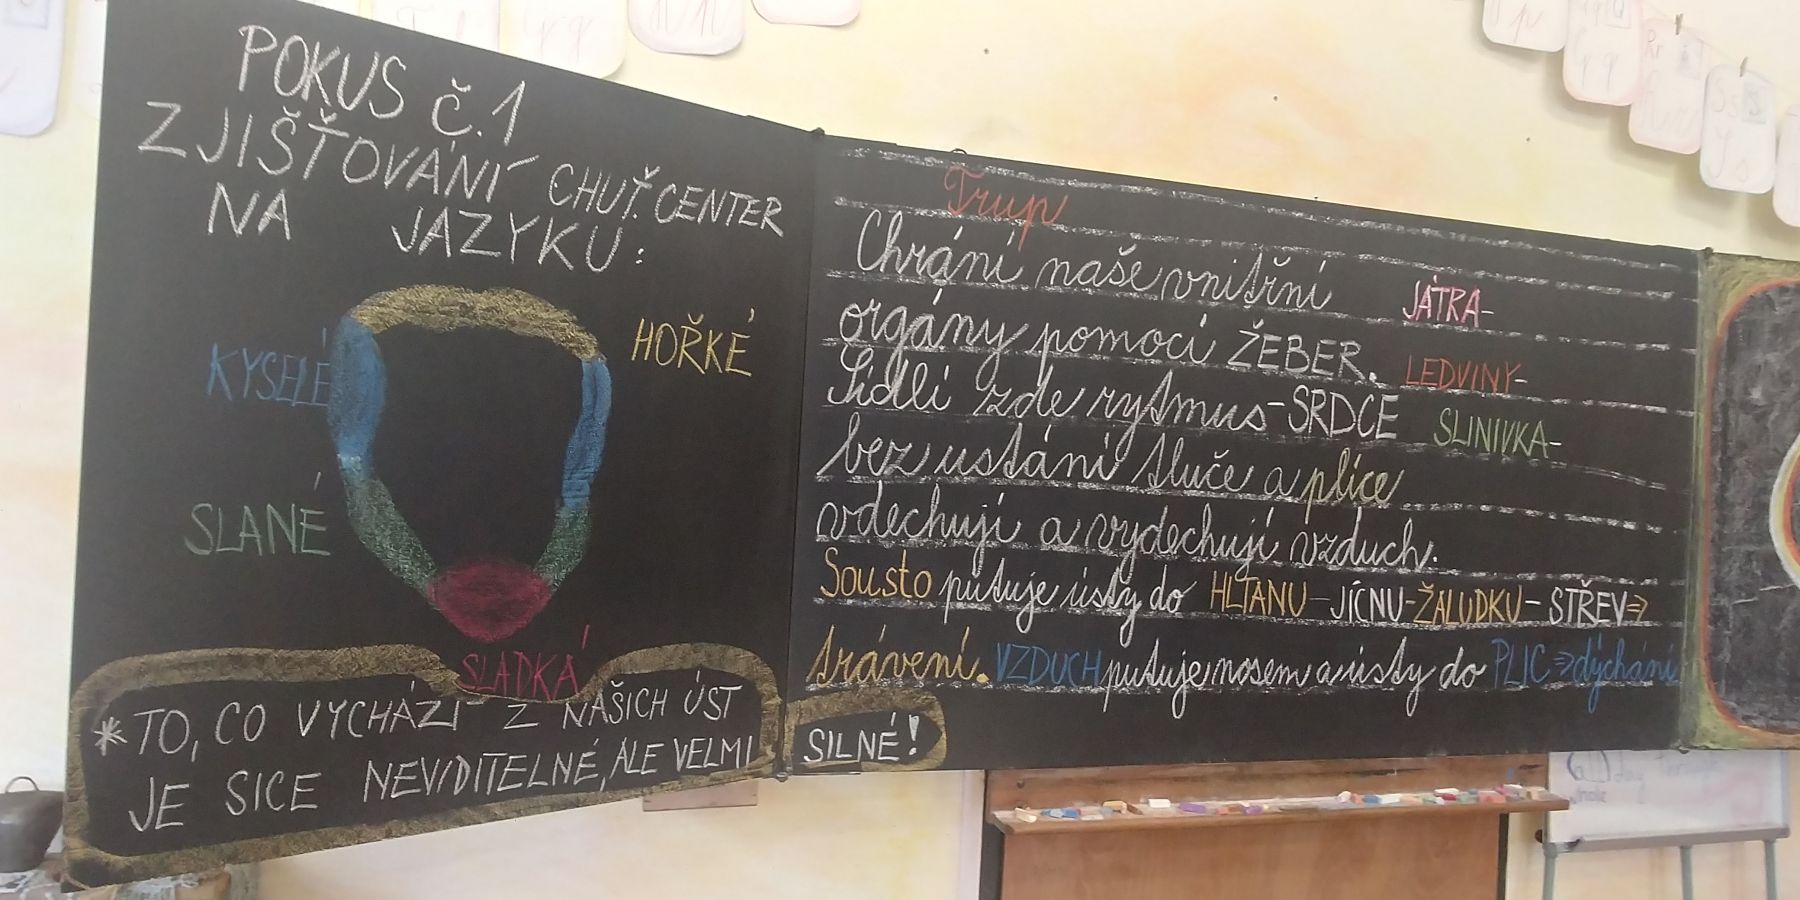 POKUS Č.1
ZJIŠŤOVÁNÍ CHUŤ. CENTER
NA JAZYKU:
HOŘKÉ
KYSELÉ
SLANÉ
SLADKÁ
*TO, CO VYCHÁZÍ Z NAŠICH ÚST
JE SICE NEVIDITELNÉ, ALE VELMI
SILNÉ!
Trup
Chrání naše vnitřní
orgány pomocí ŽEBER.
Sídlí zde rytmus-SRDCE
bez ustání tluče a plíce
vdechují a vydechují vzduch.
Sousto putuje ústy do HLTANU-JÍCNU-ŽALUDKU-STŘEV⇒
trávení. VZDUCH putuje nosem a ústy do PLIC⇒dýchání
JÁTRA-
LEDVINY-
SLINIVKA-